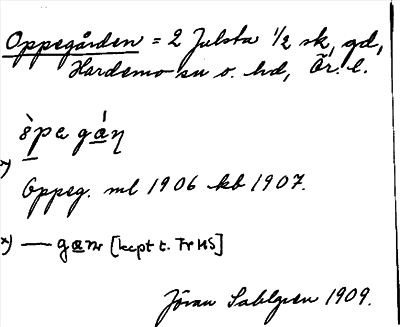 Oppegården = 2 Julsta 1/2 sk, gd,
Hardemo sn o. hd, Ör. l.
òpe gá̱η
x)
Oppeg. ml 1906 kb 1907.
x) — ga̱nr [kept t. Fr HS]
Jöran Sahlgren 1909.